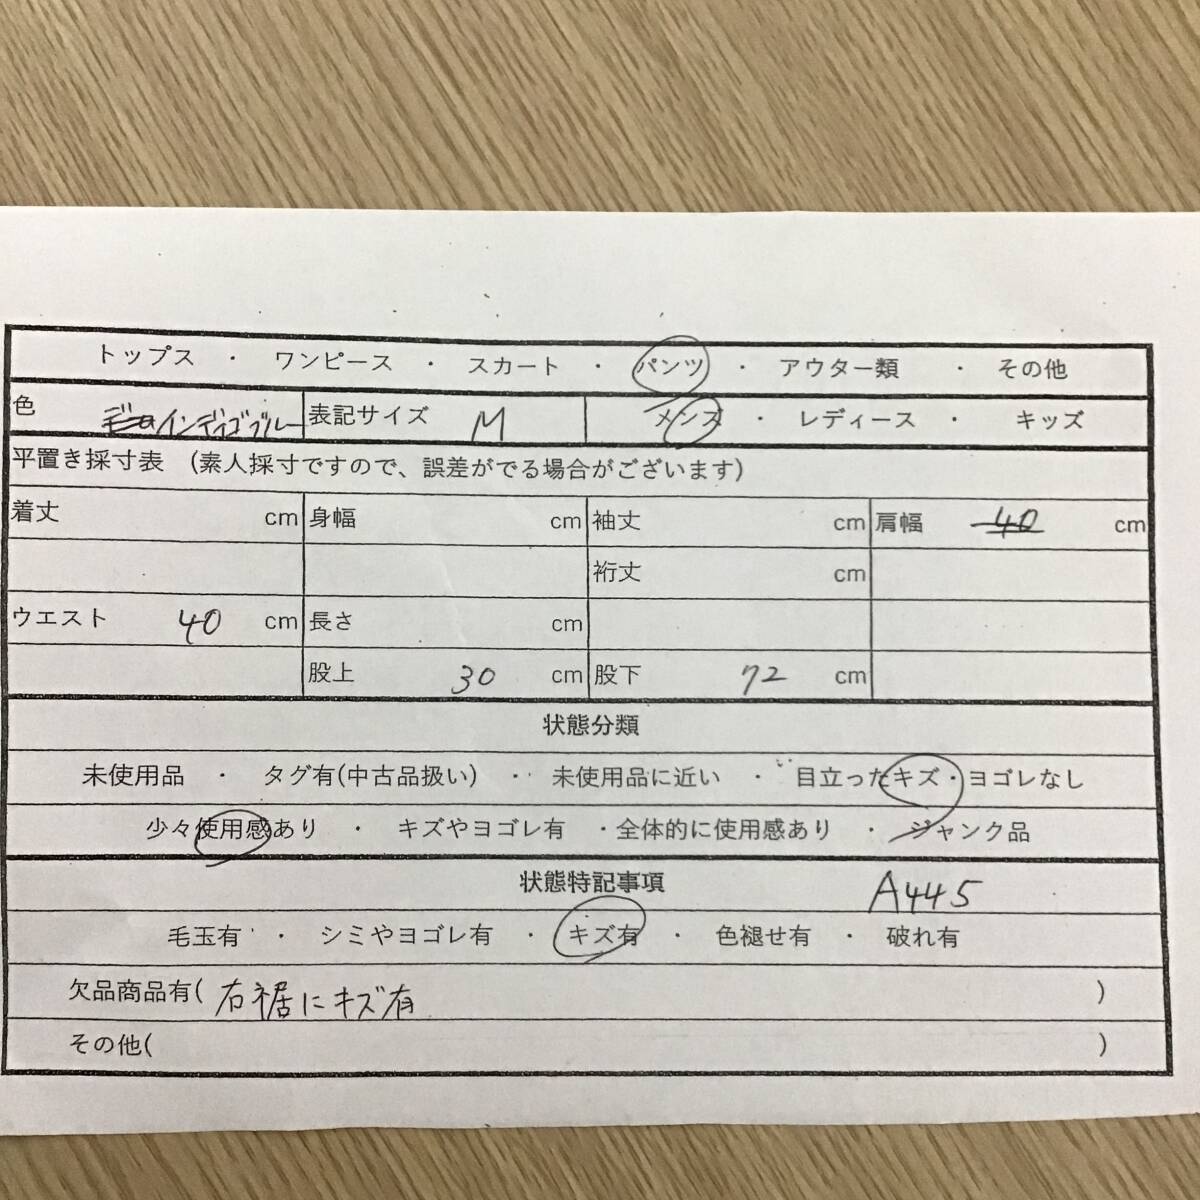 トップス ・ ワンピース ・ スカート ・ パンツ ・ アウター類 ・ その他
色 インディゴブルー 表記サイズ M メンズ ・ レディース ・ キッズ
平置き採寸表 (素人採寸ですので、誤差がでる場合がございます)
着丈 cm 身幅 cm 袖丈 cm 肩幅 40 cm
裄丈 cm
ウエスト 40 cm 長さ cm
股上 30 cm 股下 72 cm
状態分類
未使用品 ・ タグ有(中古品扱い) ・ 未使用品に近い ・ 目立ったキズ・ヨゴレなし
少々使用感あり ・ キズやヨゴレ有 ・全体的に使用感あり ・ ジャンク品
状態特記事項 A445
毛玉有 ・ シミやヨゴレ有 ・ キズ有 ・ 色褪せ有 ・ 破れ有
欠品商品有( 右裾にキズ有 )
その他( )